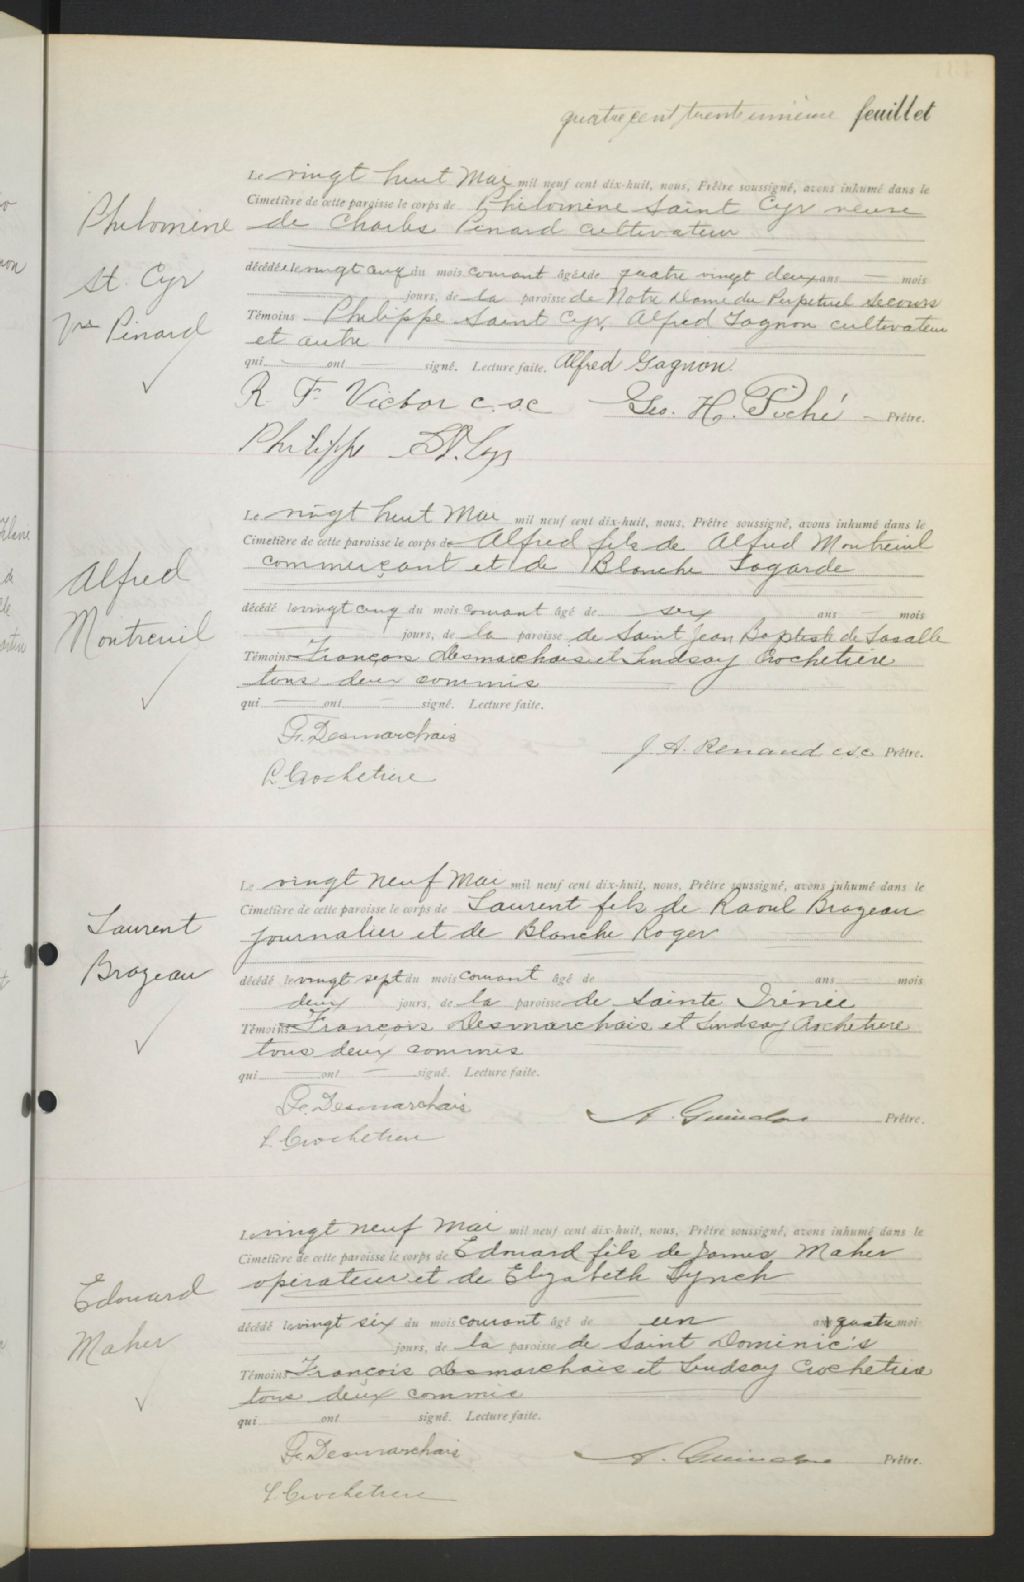 quatre cent trente unième feuillet
Le vingt huit Mai mil neuf cent dix-huit, nous, Prêtre soussigné, avons inhumé dans le
Cimetière de cette paroisse le corps de Philomine Saint Cyr veuve
Philomine de Charles Pinard cultivateur
St. Cyr
vve Pinard
décédée le vingt cinq du mois courant âgée de quatre vingt deux ans — mois
jours, de la paroisse de Notre Dame du Perpetuel Secours
Témoins Philippe Saint Cyr, Alfred Gagnon cultivateur
et autre
qui ont signé. Lecture faite. Alfred Gagnon.
R. F. Victor c.s.c Geo. H. Piché Prêtre.
Philippe St. Cyr
Le vingt huit Mai mil neuf cent dix-huit, nous, Prêtre soussigné, avons inhumé dans le
Cimetière de cette paroisse le corps de Alfred fils de Alfred Montreuil
Alfred commerçant et de Blanche Lagarde
Montreuil
décédé le vingt cinq du mois courant âgé de six ans — mois
jours, de la paroisse de Saint Jean Baptiste de Lasalle
Témoins François Desmarchais et Lindsay Crochetiere
tous deux commis
qui — ont — signé. Lecture faite.
F. Desmarchais
J. A. Renaud c.s.c Prêtre.
L. Crochetiere
Le vingt neuf Mai mil neuf cent dix-huit, nous, Prêtre soussigné, avons inhumé dans le
Cimetière de cette paroisse le corps de Laurent fils de Raoul Brazeau
Laurent journalier et de Blanche Roger
Brazeau
décédé le vingt sept du mois courant âgé de ans mois
deux jours, de la paroisse de Sainte Irénée
Témoins François Desmarchais et Lindsay Crochetiere
tous deux commis
qui — ont — signé. Lecture faite.
F. Desmarchais
A. Guindon Prêtre.
L. Crochetiere
Le vingt neuf Mai mil neuf cent dix-huit, nous, Prêtre soussigné, avons inhumé dans le
Cimetière de cette paroisse le corps de Edouard fils de James Maher
Edouard opérateur et de Elizabeth Lynch
Maher
décédé le vingt six du mois courant âgé de un an quatre moi
jours, de la paroisse de Saint Dominic's
Témoins François Desmarchais et Lindsay Crochetiere
tous deux commis
qui ont signé. Lecture faite.
F. Desmarchais
A. Guindon Prêtre.
L. Crochetiere